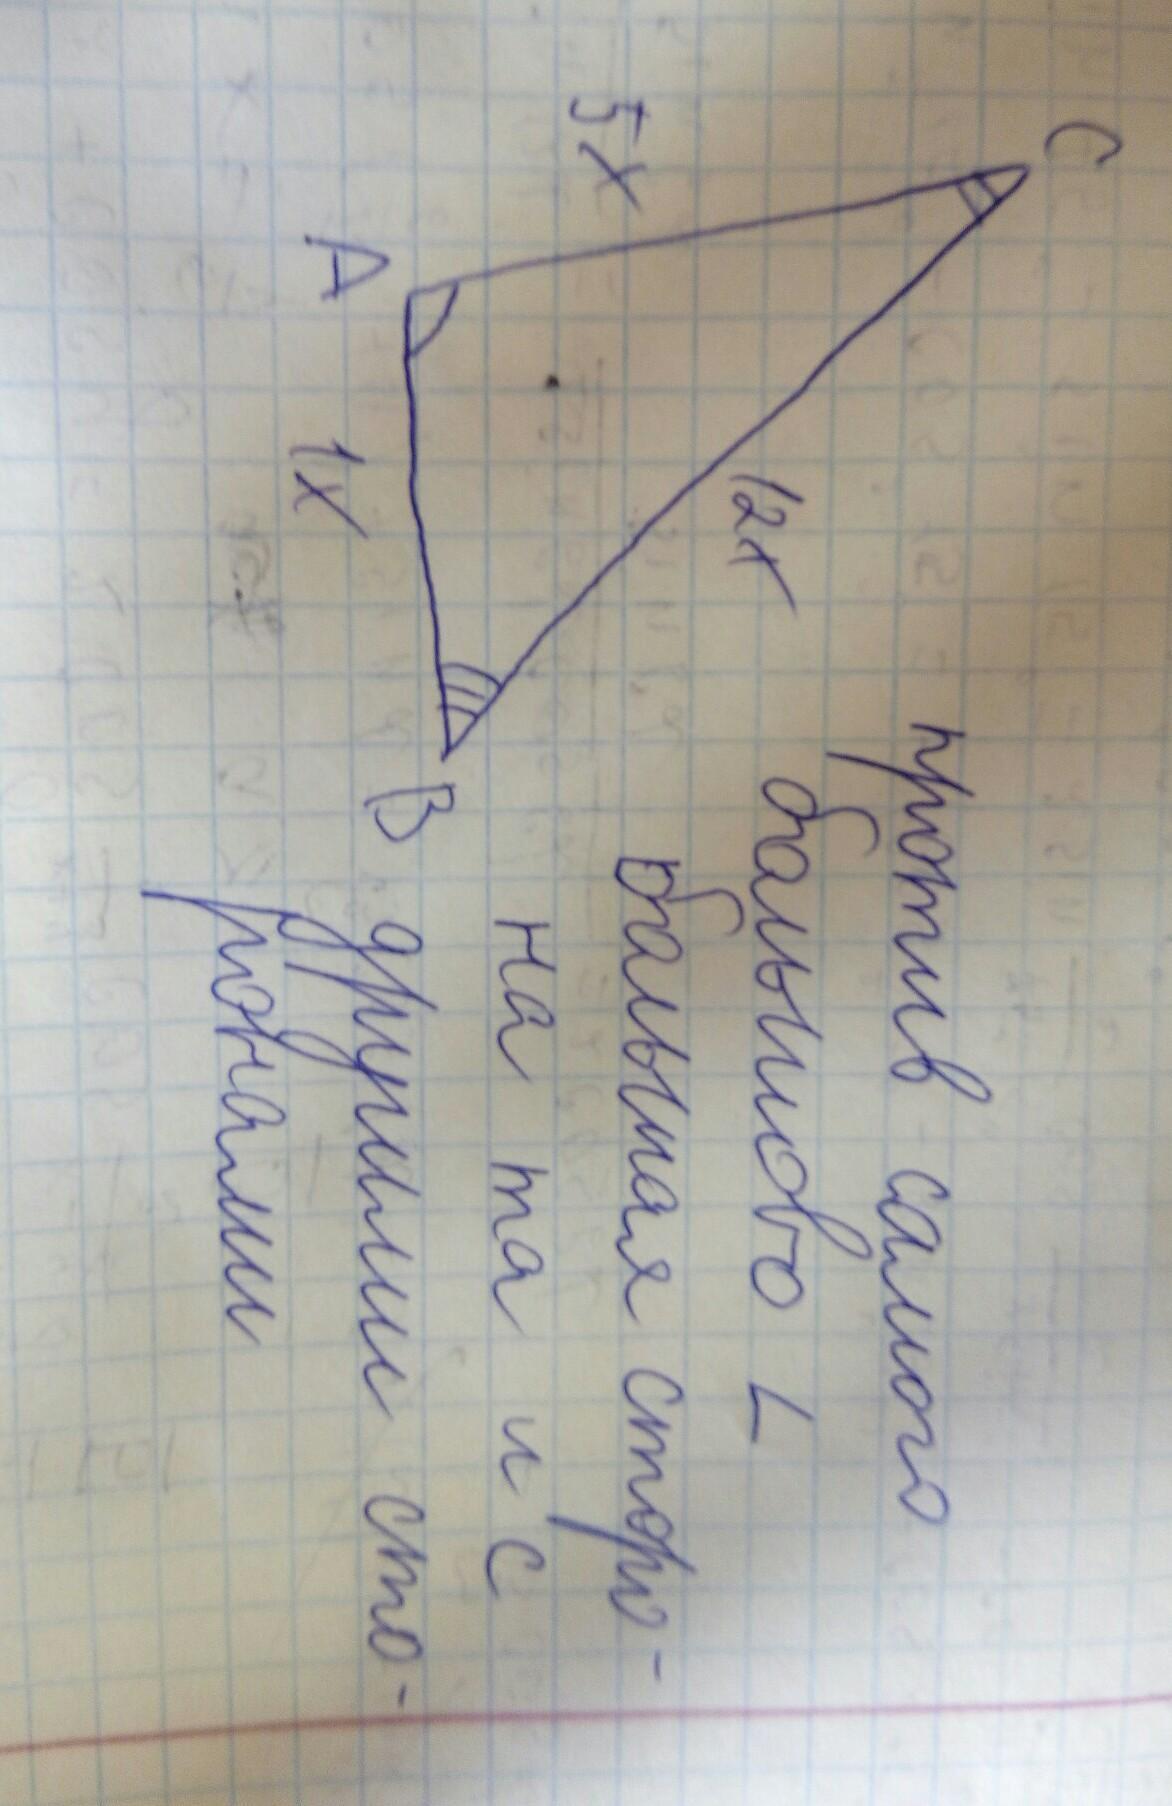 C
5x
12x
A
1x
B
против самого
большого L
большая сторо-
на та и с
другими сто-
ронами